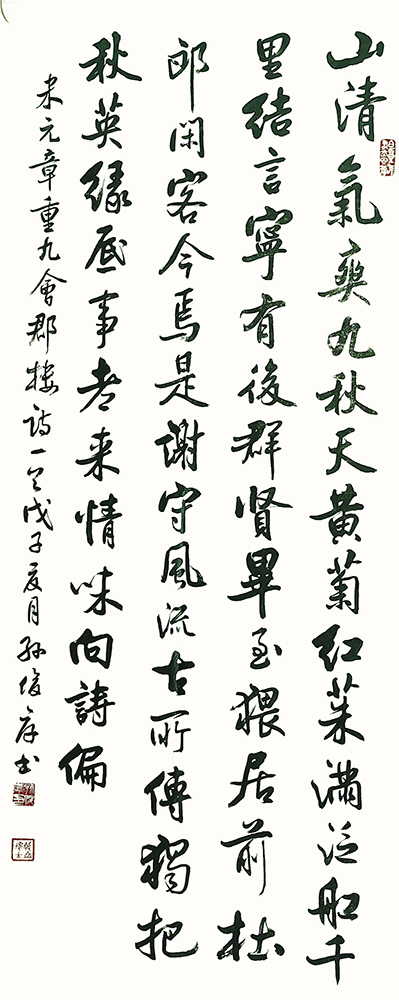 山清氣爽九秋天黃菊紅茱滿泛船千
里結言寧有後群賢畢至猥居前杜
郎閑客今焉是謝守風流古所傳獨把
秋英緣底事老來情味向詩偏
米元章重九會郡樓詩一首戊子夏月孫俊書